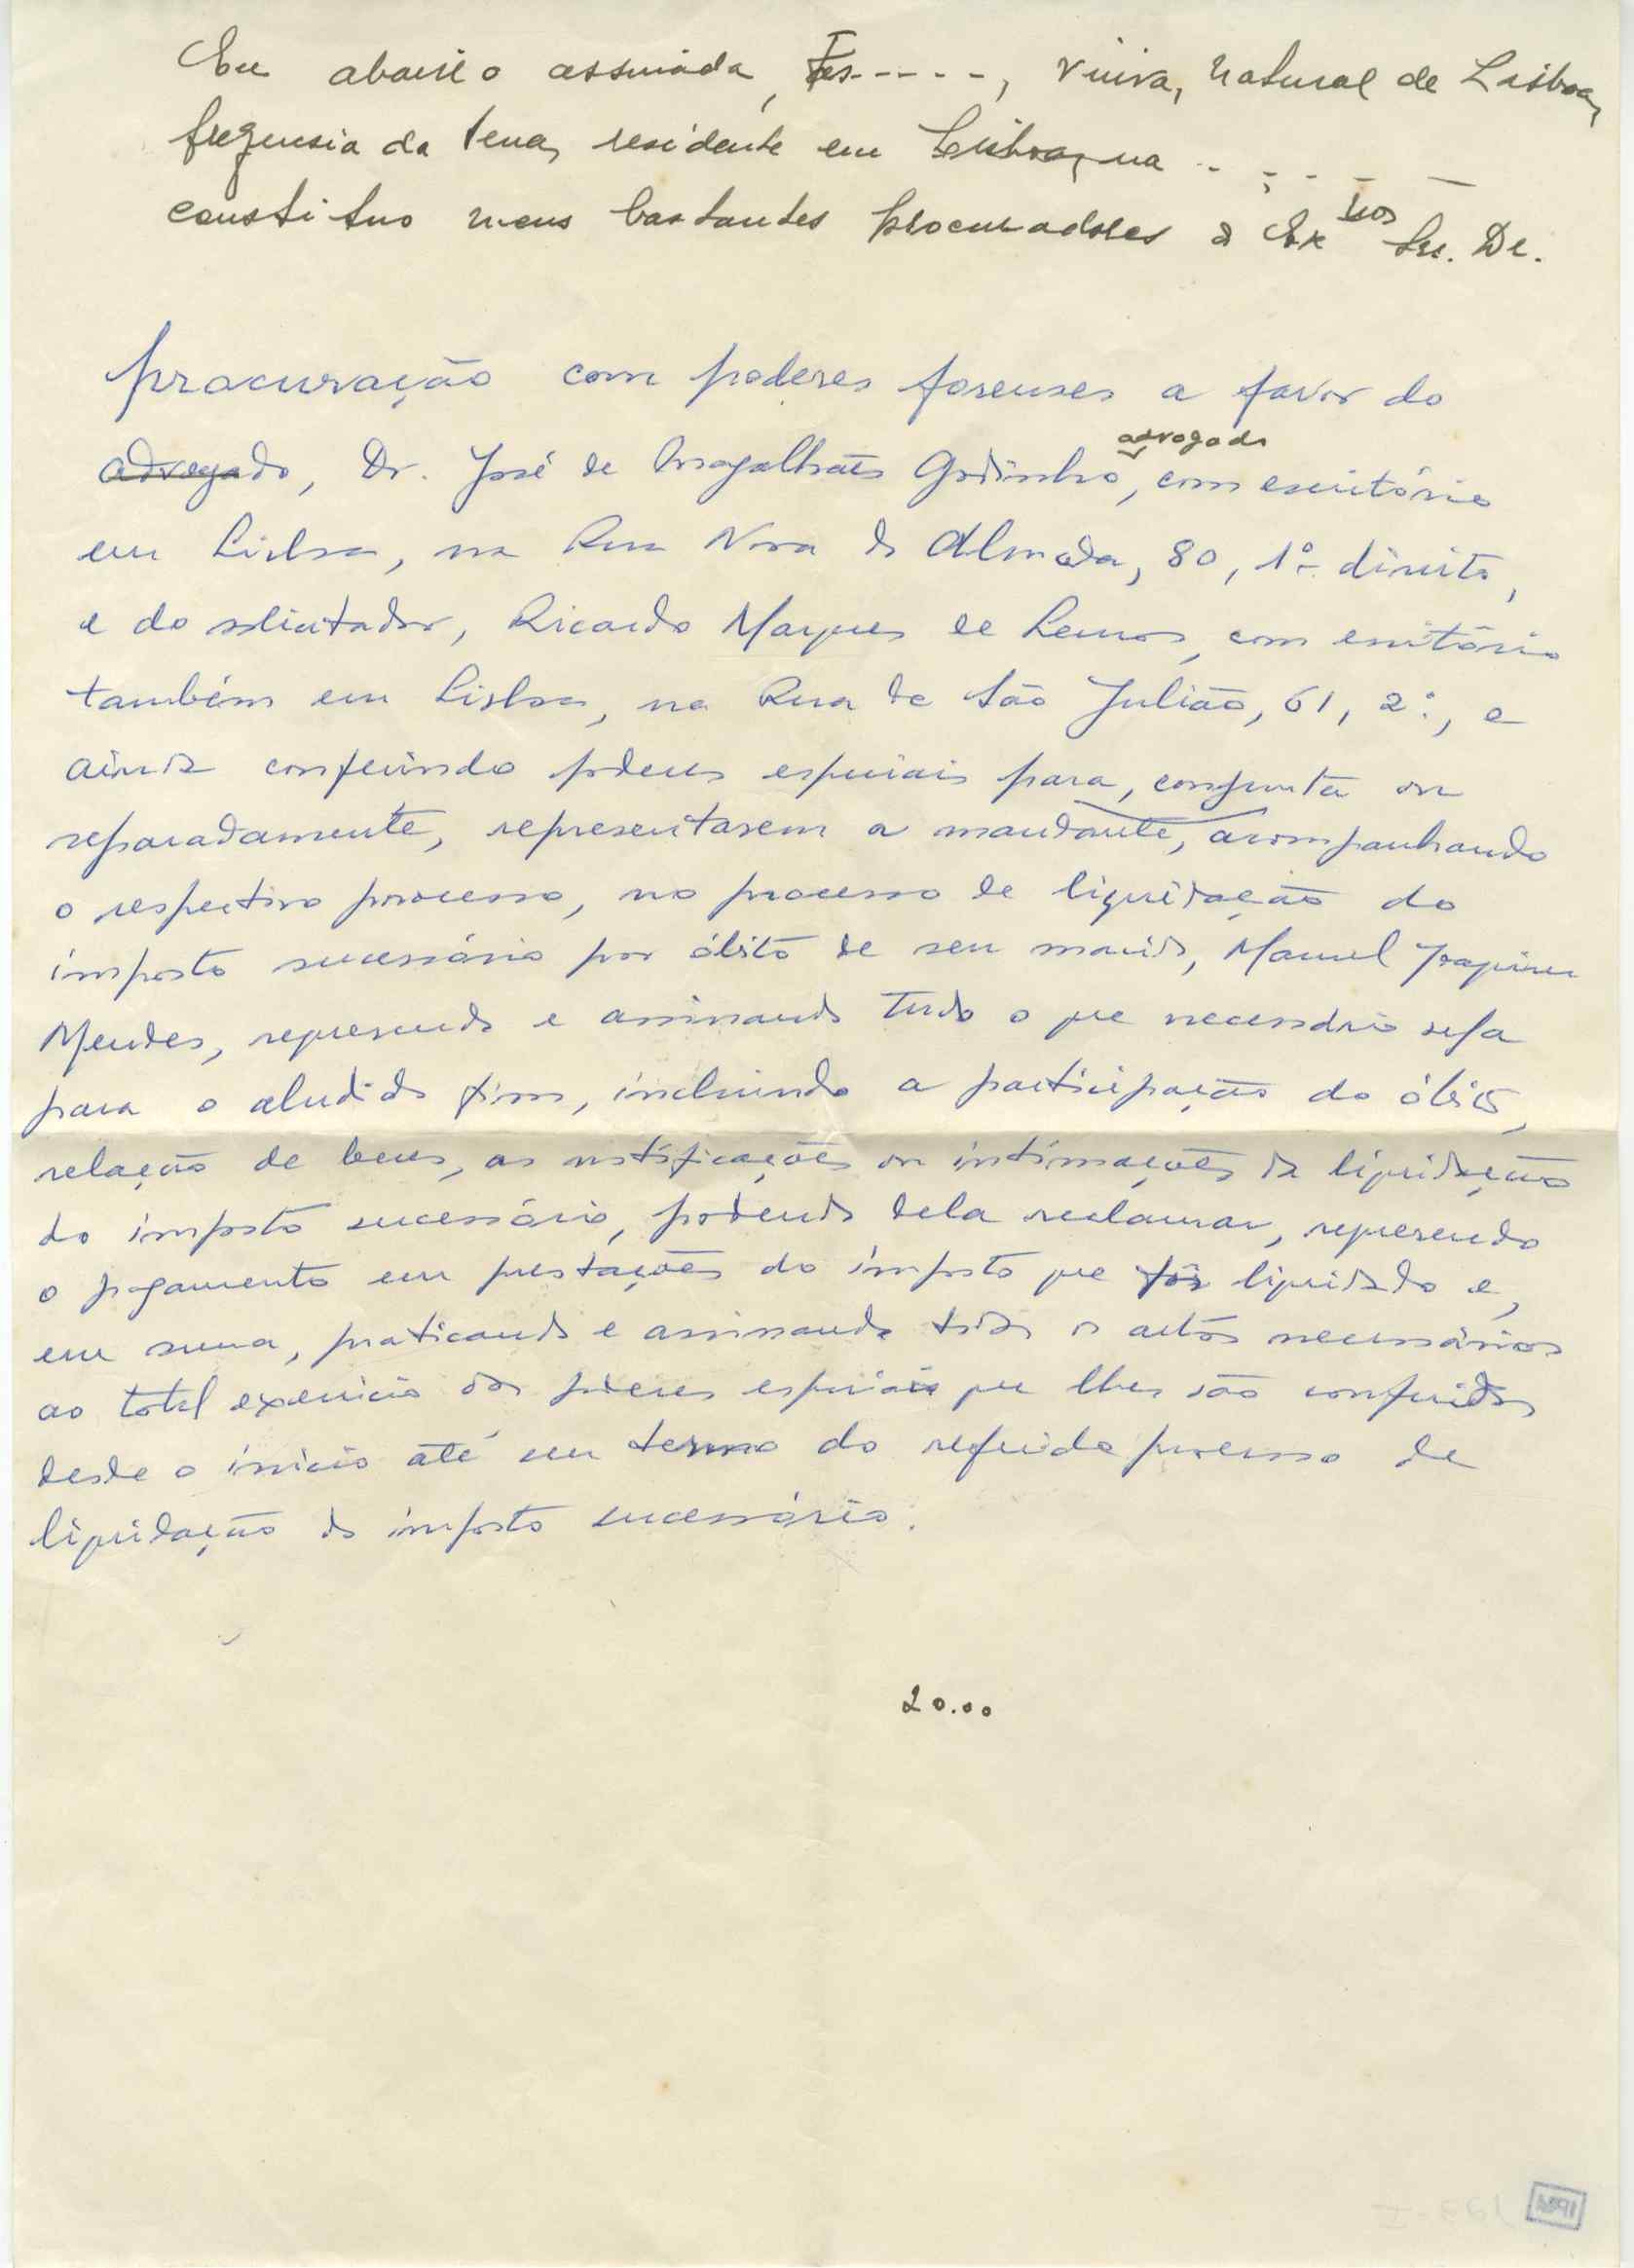 Eu abaixo assinada, F.es-----, viúva, natural de Lisboa,
freguesia da Pena, residente em Lisboa, na - - - - -
constituo meus bastantes procuradores os Ex mos Srs. Dr.
procuração com poderes forenses a favor do
advogado, Dr. José de Magalhães Godinho, advogado com escritório
em Lisboa, na Rua Nova do Almada, 80, 1º direito,
e do solicitador, Ricardo Marques de Lemos, com escritório
também em Lisboa, na Rua de São Julião, 61, 2º, e
ainda conferindo poderes especiais para, conjunta ou
separadamente, representarem a mandante, acompanhando
o respectivo processo, no processo de liquidação do
imposto sucessório por óbito de seu marido, Manuel Joaquim
Mendes, requerendo e assinando tudo o que necessário seja
para o aludido fim, incluindo a participação do óbito,
relação de bens, as notificações ou intimações da liquidação
do imposto sucessório, podendo dela reclamar, requerendo
o pagamento em prestações do imposto que fôr liquidado e,
em suma, praticando e assinando todos os actos necessários
ao total exercício dos poderes especiais que lhes são conferidos
desde o início até seu termo do referido processo de
liquidação do imposto sucessório.
20.00